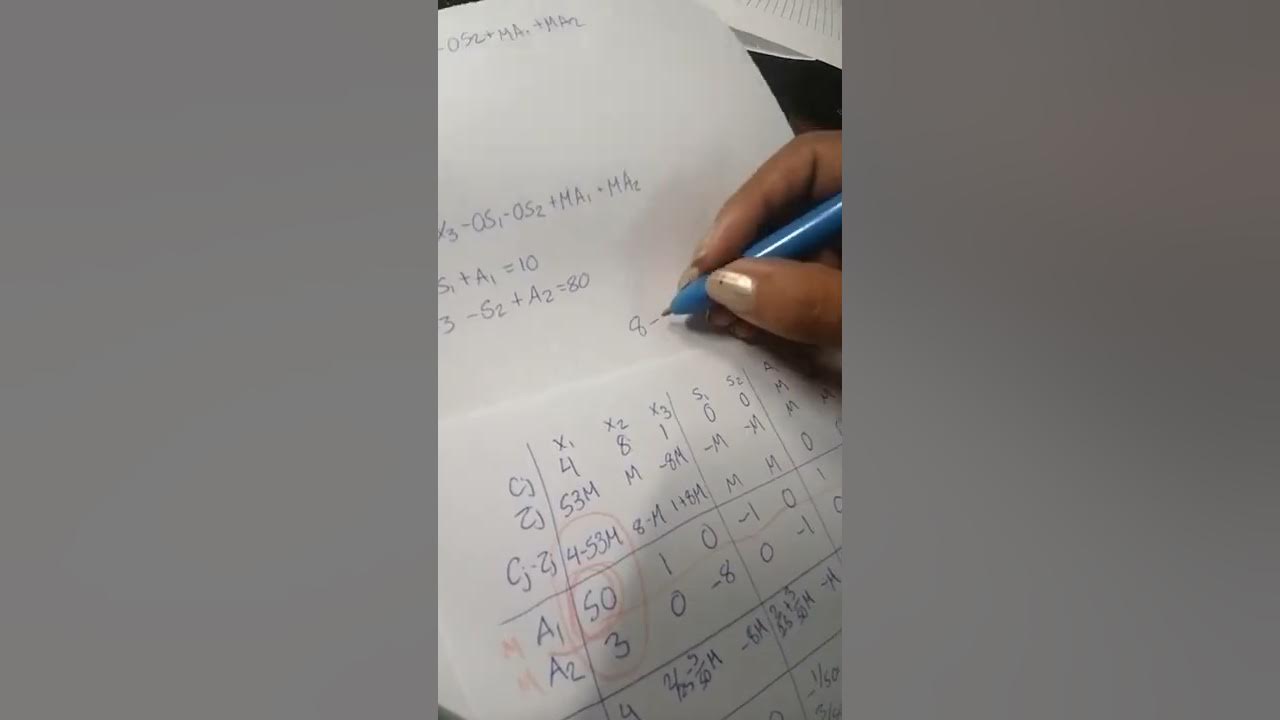 -OS2+MA1+MA2
X3-OS1-OS2+MA1+MA2
S1+A1=10
3 -S2+A2=80
8-
X1 X2 X3 S1 S2 A
Cj 4 8 1 0 0 M M
Zj 53M M -8M -M -M M
Cj-Zj 4-53M 8-M 1+8M M M 0
M A1 50 1 0 -1 0 1
M A2 3 0 -8 0 -1 0
4 -8M -M
-1/50